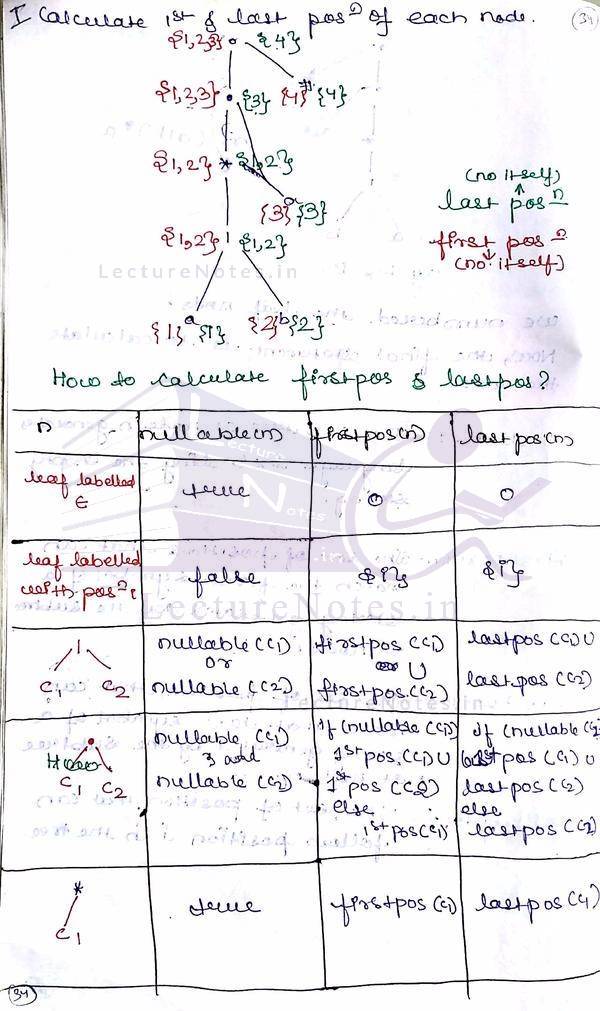 I Calculate 1st & last posn of each node.
34
{1,2,3} • {4}
{1,2,3} • {3} {4} # {4}
{1,2} * {1,2}
(no itself)
last posn
{3} a {3}
{1,2} | {1,2}
first posn
(no itself)
LectureNotes.in
{1} a {1} {2} b {2}
How to calculate firstpos & lastpos?
n nullable(n) firstpos(n) lastpos(n)
leaf labelled ∈ true O O
leaf labelled with posn i false {i} {i}
LectureNotes.in
| C1 C2
nullable (C1) or nullable (C2)
firstpos (C1) U firstpos (C2)
lastpos (C1) U lastpos (C2)
• C1 C2
nullable (C1) and nullable (C2)
If (nullable (C1)) 1st pos (C1) U 1st pos (C2) else 1st pos (C1)
If (nullable (C2 last pos (C1) U lastpos (C2) else lastpos (C2)
* C1
true
firstpos (C1)
lastpos (C1)
34